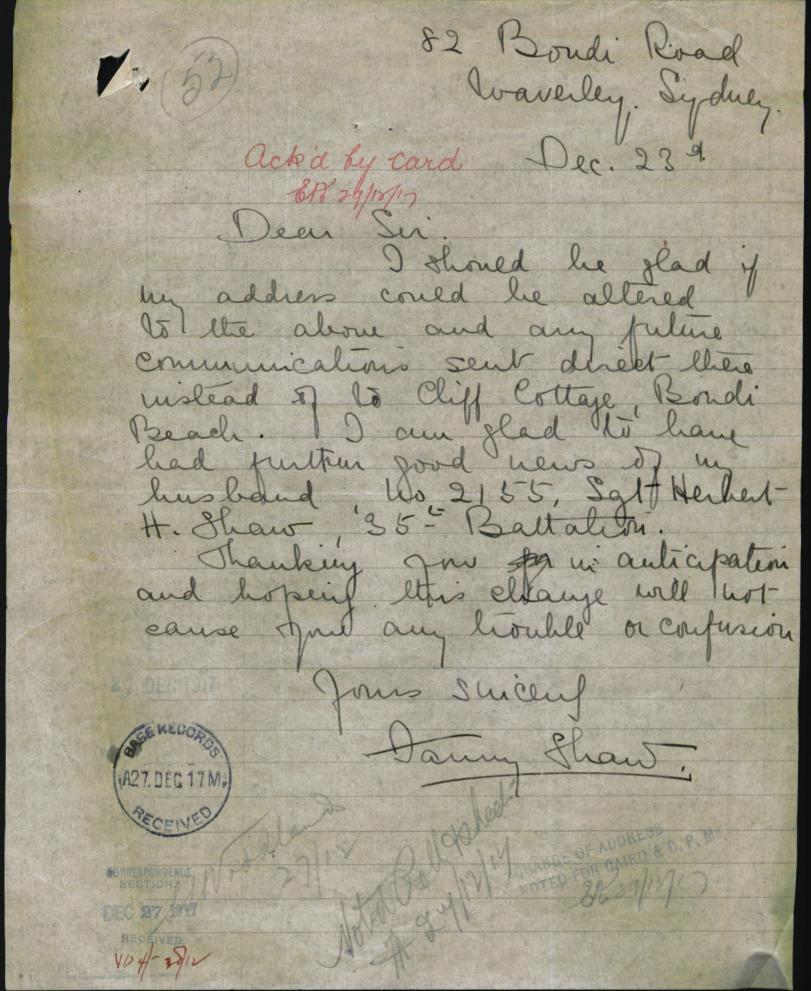 52
82 Bondi Road
Waverley, Sydney.
Ack'd by card
27/12/17
Dec. 23d
Dear Sir.
I should be glad if
my address could be altered
to the above and any future
communications sent direct there
instead of to Cliff Cottage, Bondi
Beach. I am glad to have
had further good news of my
husband No 2155, Sgt Herbert
H. Shaw, 35th Battalion.
Thanking you in anticipation
and hoping this change will not
cause you any trouble or confusion
Yours sincerely
Fanny Shaw.
BASE RECORDS
A27. DEC. 17M.
RECEIVED
27/12
Noted Roll & Sheet
27/12/17
CHANGE OF ADDRESS
NOTED FOR CAIRO & D. P. M.
27/12/17
CORRESPONDENCE
SECTION
DEC 27 1917
RECEIVED